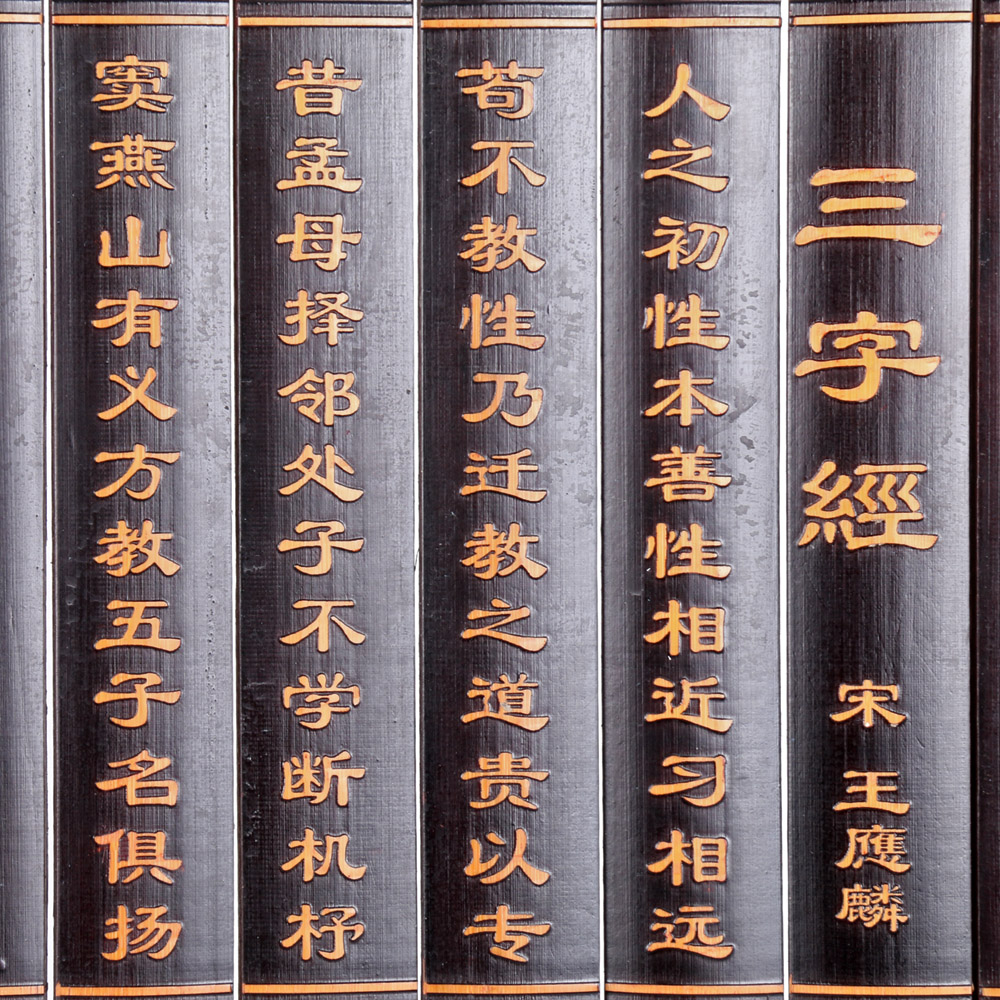 三字經 宋 王應麟
人之初性本善性相近习相远
苟不教性乃迁教之道贵以专
昔孟母择邻处子不学断机杼
窦燕山有义方教五子名俱扬